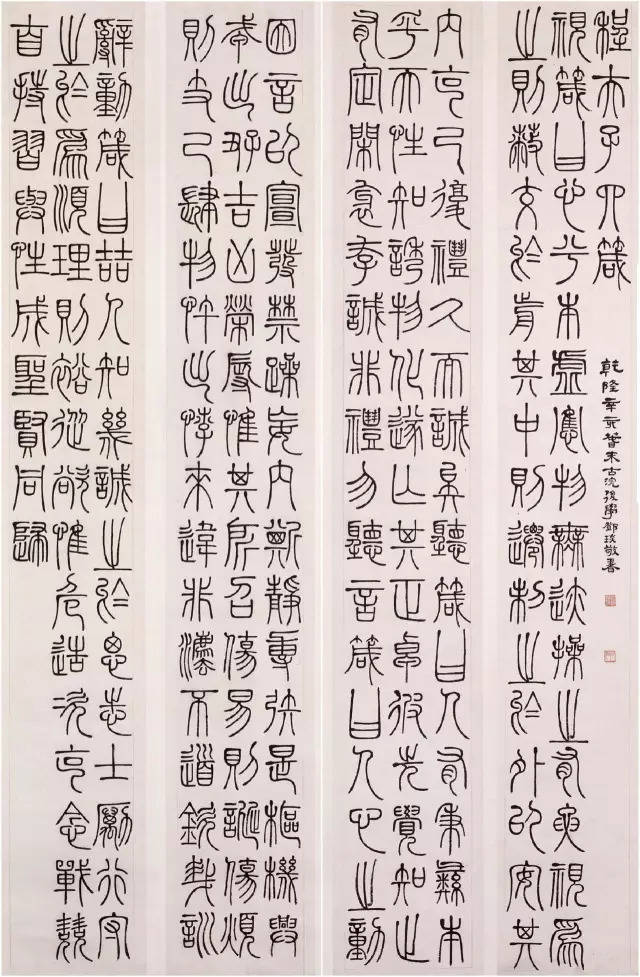 程夫子四箴
視箴曰心兮本虛應物無迹操之有要視爲
之則蔽交於前其中則遷制之於外以安其
內克己復禮久而誠矣聽箴曰人有秉彝本
乎天性知誘物化遂亡其正卓彼先覺知止
有定閑邪存誠非禮勿聽言箴曰人心之動
因言以宣發禁躁妄內斯靜專矧是樞機興
戎出好吉凶榮辱惟其所召傷易則誕傷煩
則支己肆物忤出悖來違非灋不道欽哉訓
辭動箴曰喆人知幾誠之於思志士勵行守
之於爲順理則裕從欲惟危造次克念戰兢
自持習與性成聖賢同歸
乾隆辛亥古浣後學鄧琰敬書